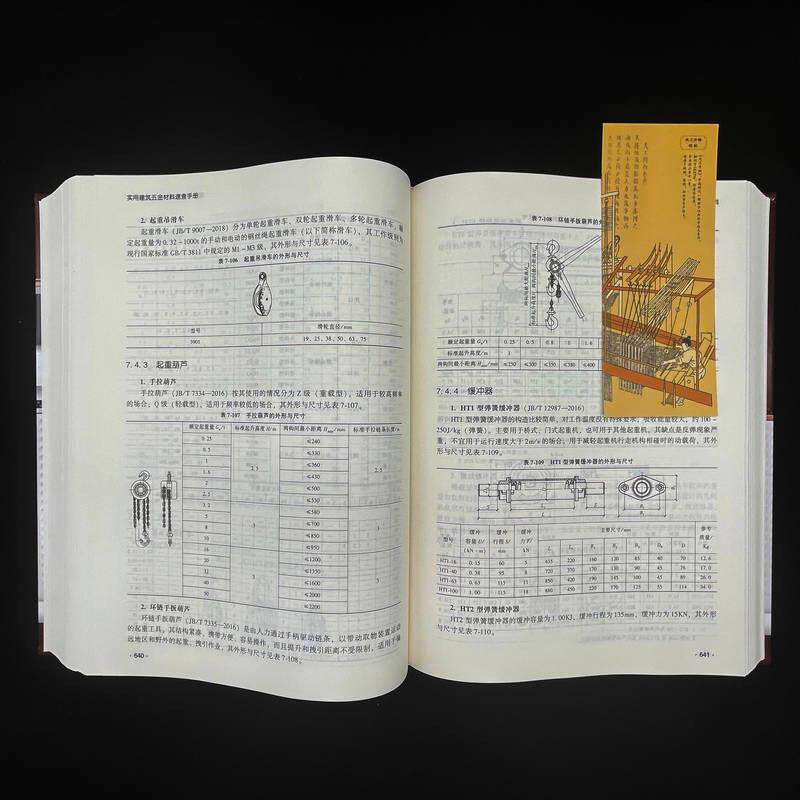 实用建筑五金材料速查手册
2. 起重吊滑车
起重滑车（JB/T 9007—2018）分为单轮起重滑车、双轮起重滑车、多轮起重滑车，额
定起重量为0.32～1000t的手动和电动的钢丝绳起重滑车（以下简称滑车），其工作级别为
现行国家标准GB/T 3811中规定的M1～M3级，其外形与尺寸见表7-106。
表7-106 起重吊滑车的外形与尺寸
型号 滑轮直径/mm
3901 19，25，38，50，63，75
7.4.3 起重葫芦
1. 手拉葫芦
手拉葫芦（JB/T 7334—2016）按其使用的情况分为Z级（重载型），适用于较高频率
的场合；Q级（轻载型），适用于频率较低的场合，其外形与尺寸见表7-107。
表7-107 手拉葫芦的外形与尺寸
额定起重量Gn/t 标准起升高度H/m 两钩间最小距离Hmin/mm 标准手拉链条长度/m
0.25 ≤240
0.5 ≤330
1 2.5 ≤360 2.5
1.6 ≤430
2 ≤500
2.5 ≤530
3.2 ≤580
5 ≤700
8 ≤850
10 ≤950
16 3 ≤1200 3
20 ≤1350
32 ≤1600
40 ≤2000
50 ≤2200
2. 环链手扳葫芦
环链手扳葫芦（JB/T 7335—2016）是由人力通过手柄驱动链条，以带动取物装置运动
的起重工具，其结构紧凑、携带方便、容易操作，而且提升和拽引距离不受限制，适用于偏
远地区和野外的起重、拽引作业，其外形与尺寸见表7-108。
· 640 ·
表7-108 环链手扳葫芦的外
额定起重量Gn/t 0.25 0.5 0.8 1 1.6
标准起升高度/m 1
两钩间最小距离Hmin/mm ≤250 ≤300 ≤350 ≤380 ≤400
7.4.4 缓冲器
1. HT1型弹簧缓冲器（JB/T 12987—2016）
HT1型弹簧缓冲器的构造比较简单，对工作温度没有特殊要求，吸收能量较大，约100～
250J/kg（弹簧），主要用于桥式、门式起重机，也可用于其他起重机。其缺点是反弹现象严
重，不宜用于运行速度大于2m/s的场合；用于减轻起重机行走机构相碰时的动载荷，其外
形与尺寸见表7-109。
表7-109 HT1型弹簧缓冲器的外形与尺寸
型号 缓冲容量U/(kN·m) 缓冲行程S/mm 缓冲力F/kN 主要尺寸/mm 参考质量/kg
HT1-16 0.15 60 5 435 220 160 120 85 40 70 12.6
HT1-40 0.38 95 8 720 370 170 130 90 45 76 17.0
HT1-63 0.63 115 11 850 420 190 145 100 45 89 26.0
HT1-100 1.00 115 18 880 450 220 170 125 55 114 34.0
2. HT2型弹簧缓冲器
HT2型弹簧缓冲器的缓冲容量为1.00KJ，缓冲行程为135mm，缓冲力为15KN，其外
形与尺寸见表7-110。
· 641 ·